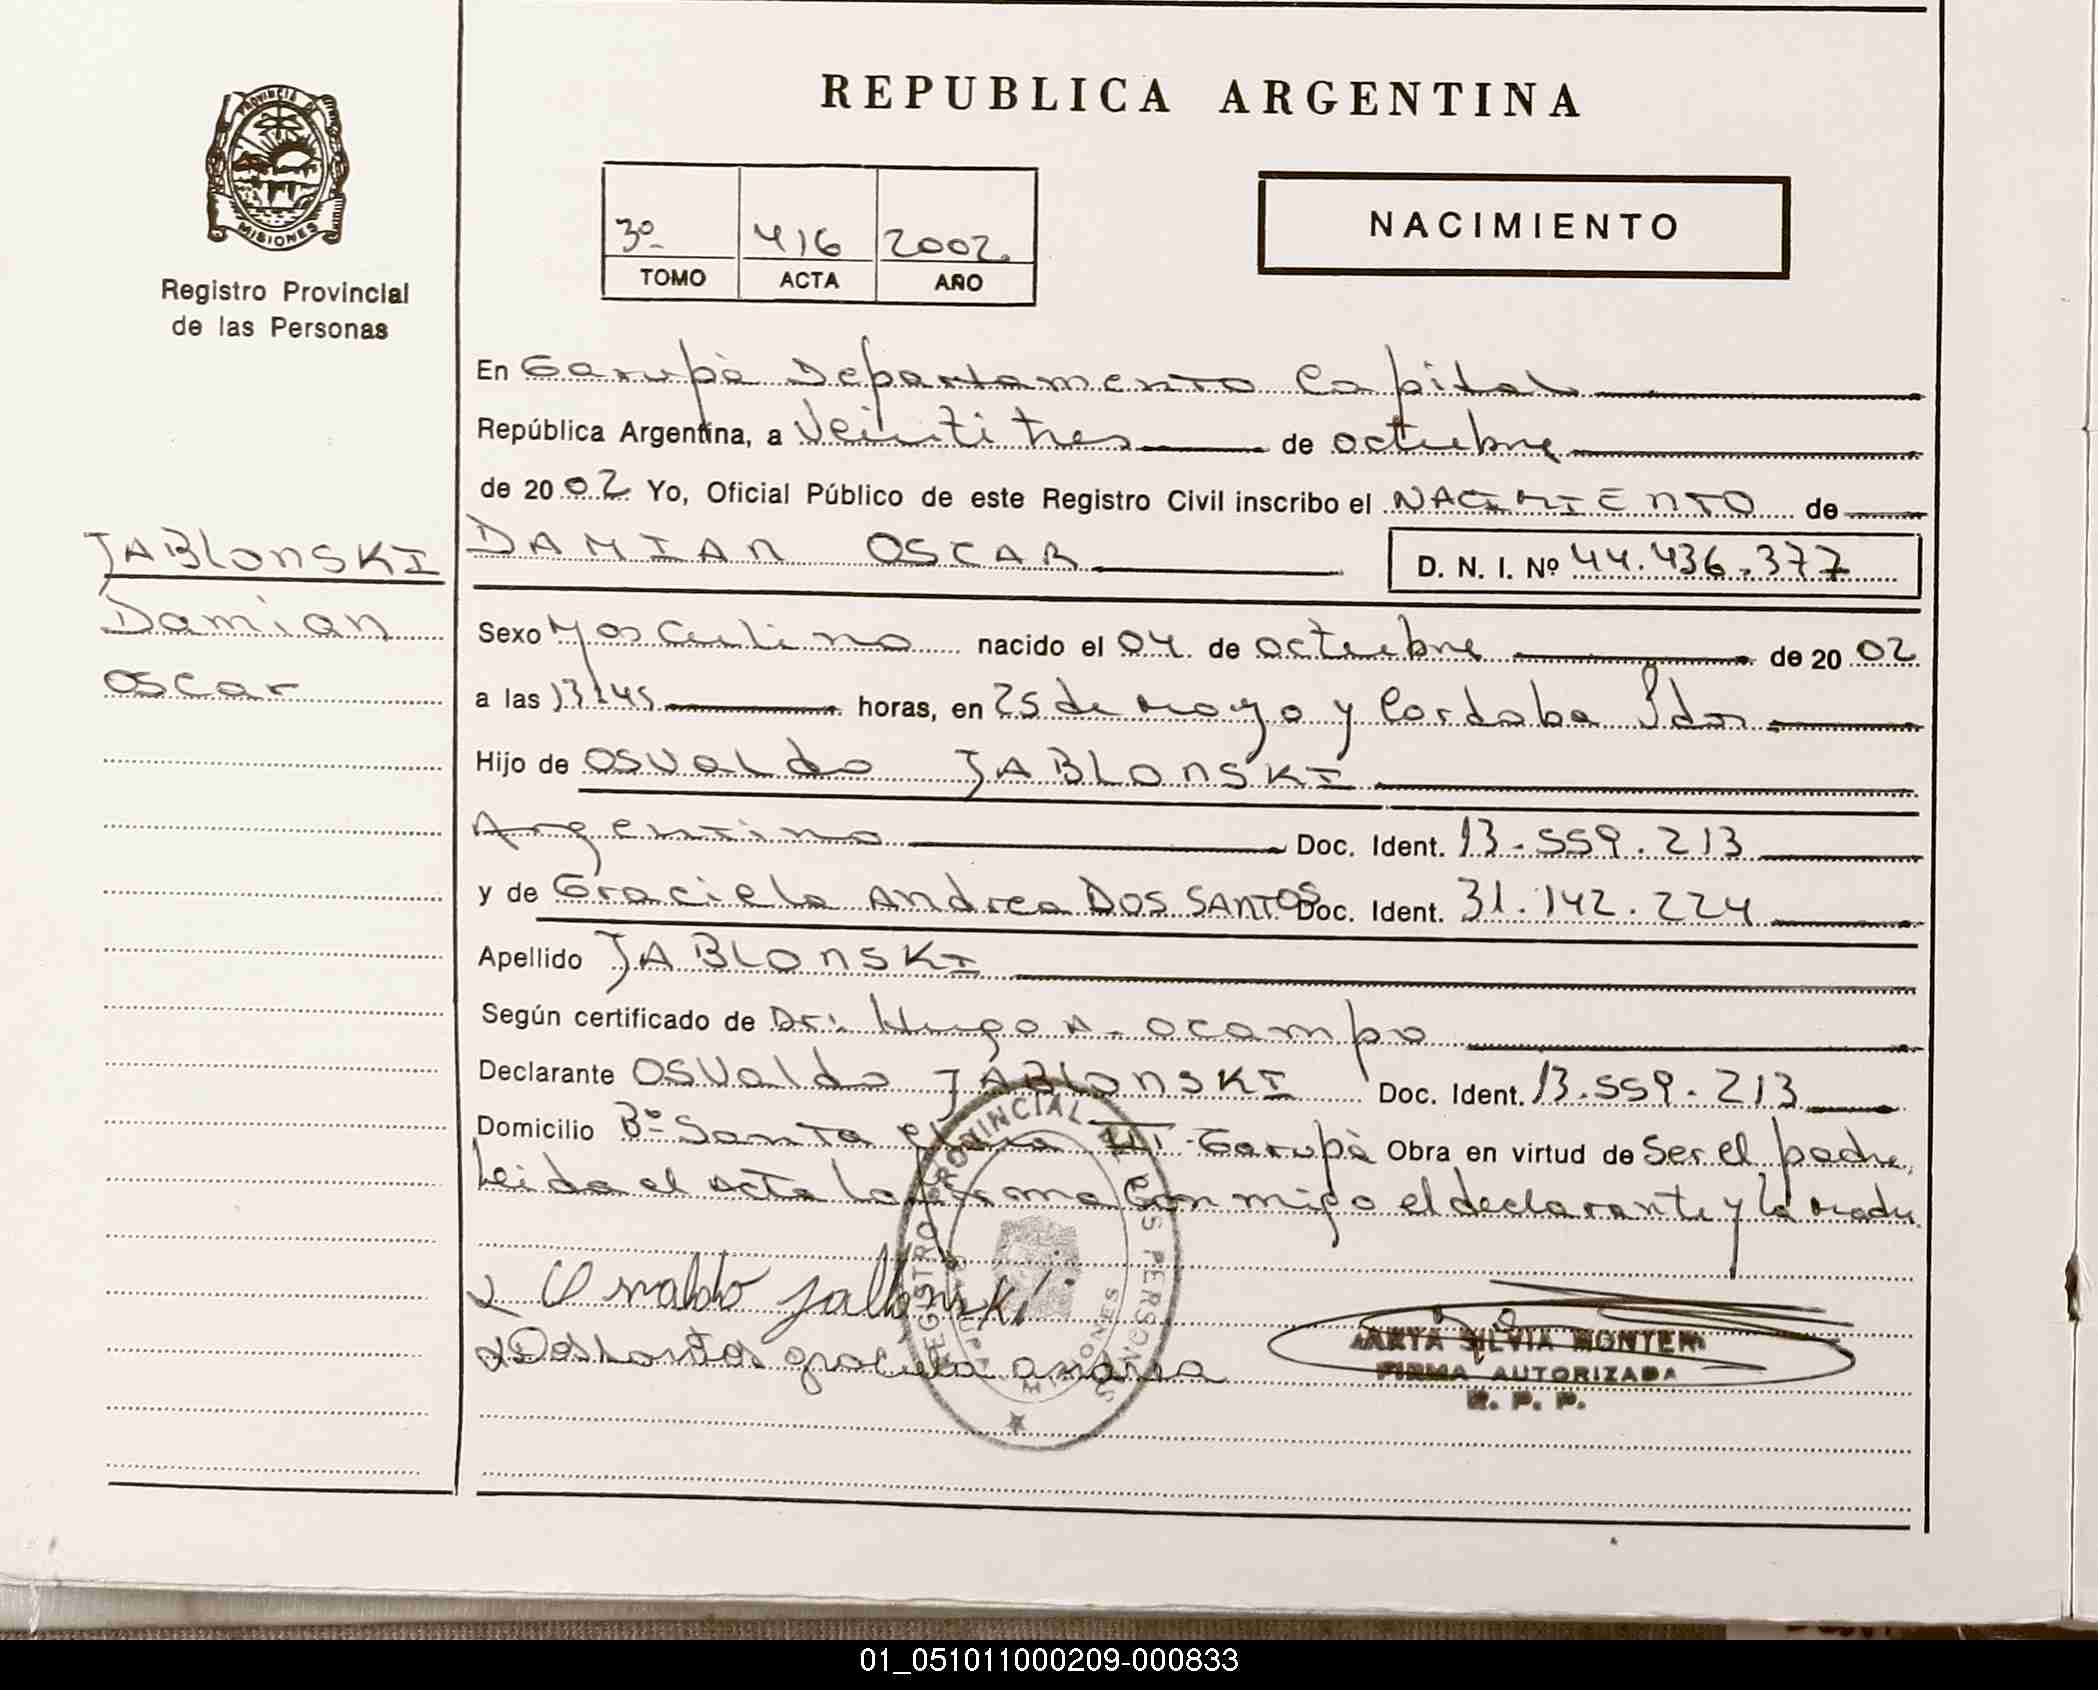 REPUBLICA ARGENTINA
PROVINCIA D MISIONES
Registro Provincial
de las Personas
3º 416 2002.
TOMO ACTA AÑO
NACIMIENTO
En Garupà Departamento Capital
República Argentina, a Veinti tres de octubre
de 2002 Yo, Oficial Público de este Registro Civil inscribo el NACIMIENTO de
JABlonSKI
Damian
oscar
DAMIAN OSCAR D. N. I. Nº 44.436.377
Sexo Masculino nacido el 04 de octubre de 20 02
a las 13:45 horas, en 25 de mayo y Cordoba Pdas
Hijo de OSValdo JABLONSKI
Argentino Doc. Ident. 13.559.213
y de Graciela Andrea DOS SANTOS Doc. Ident. 31.142.224
Apellido JABLONSKI
Según certificado de Dr: Hugo A. ocampo
Declarante OSValdo JABlonSKI Doc. Ident. 13.559.213
Domicilio Bº Santa Clara III - Garupà Obra en virtud de Ser el padre,
Leida el acta la firma conmigo el declarante y la madre
Osvaldo Jablonski
Dos Santos graciela andrea
REGISTRO PROVINCIAL DE LAS PERSONAS
MISIONES
SILVIA
FIRMA AUTORIZADA
R. P. P.
01_051011000209-000833